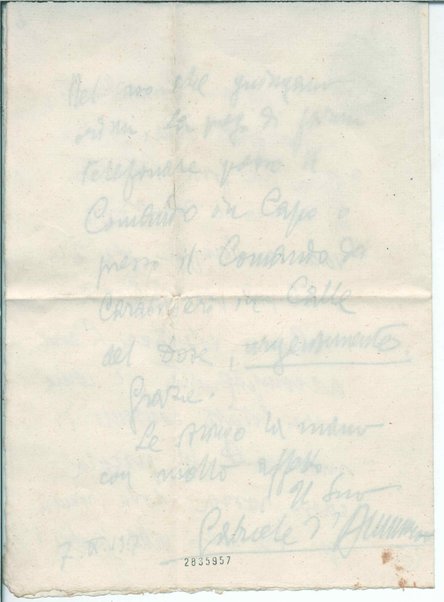 Nel caso che giungano
ordini, la prego di farmi
telefonare presso il
Comando in Capo o
presso il Comando dei
Carabinieri in Calle
del Dose, urgentemente.
Grazie.
Le stringo la mano
con molto affetto
Il suo
Gabriele d'Annunzio
2835957